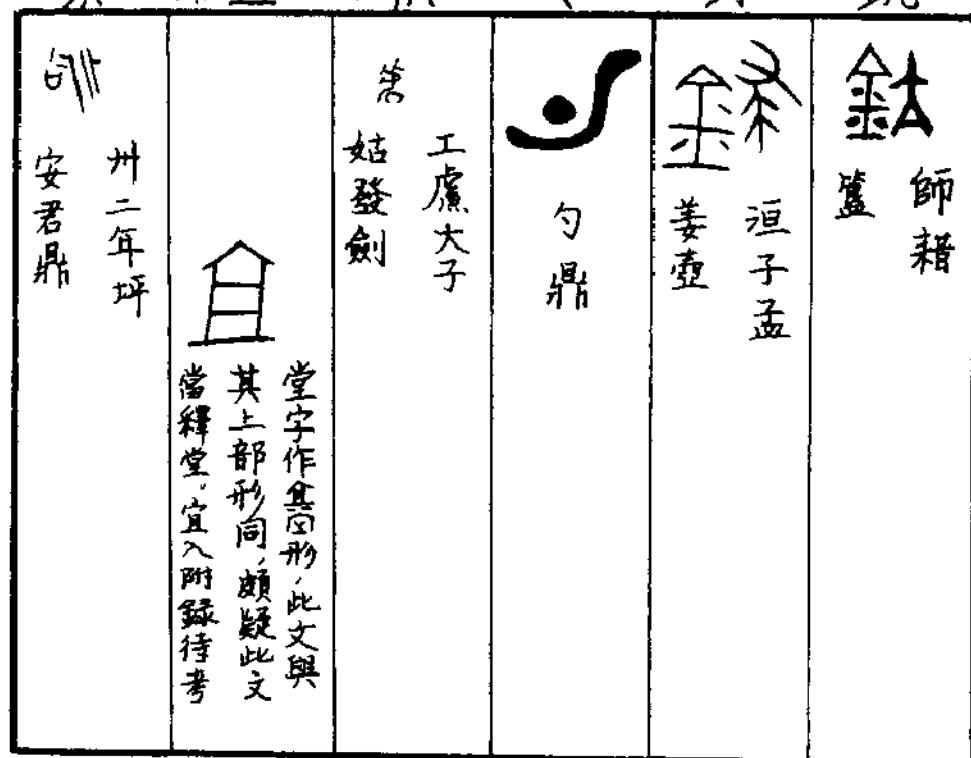 師耤
簋
洹子孟
姜壺
勺鼎
工大子
姑發劍
堂字作形，此文與
其上部形同，頗疑此文
當釋堂，宜入附錄待考
卅二年坪
安君鼎